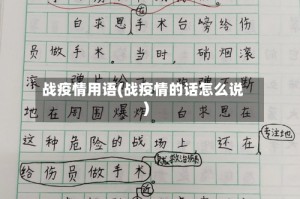 白求恩手术台旁给伤
员做手术。当时,硝烟滚
战疫情用语(战疫情的话怎么说
)
地在周围爆炸。白求恩在
专注地
这种危险的战场上还在
给伤员做手术